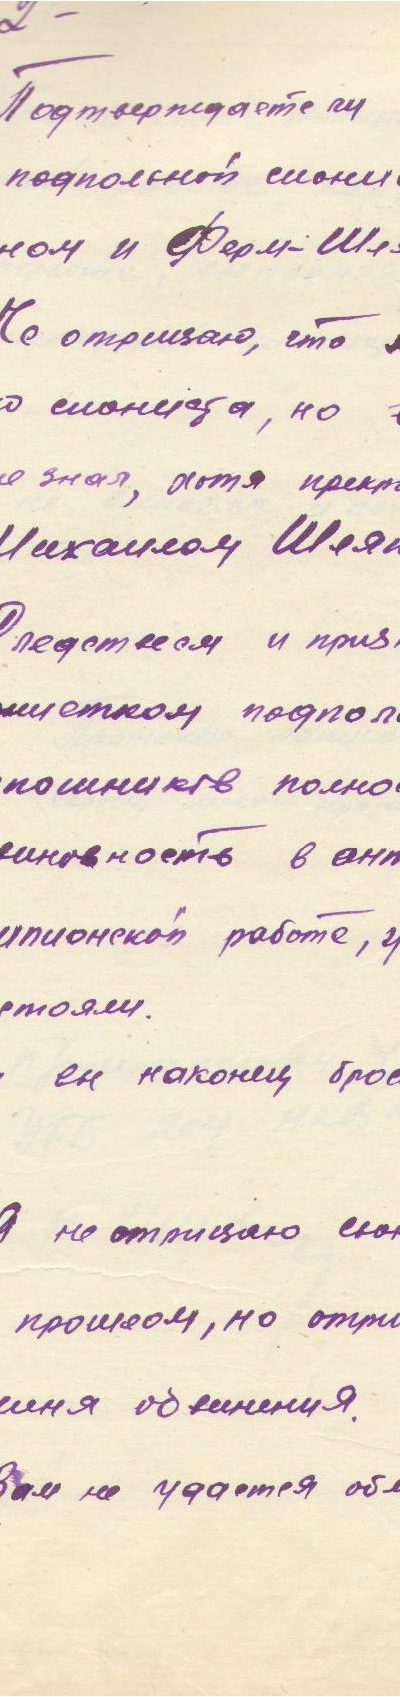 2-
Подтверждаете ли
подпольной сионис
ном и Ферм-Шля
Не отрицаю, что
о сиониста, но
не знал, хотя
Михаилом Шляп
Следствием и приз
подпол
полнос
виновность в ант
шпионской работе,
стояли.
ен наконец брос
Я не отрицаю сион
прошлом, но отри
обвинения.
Вам не удается обм